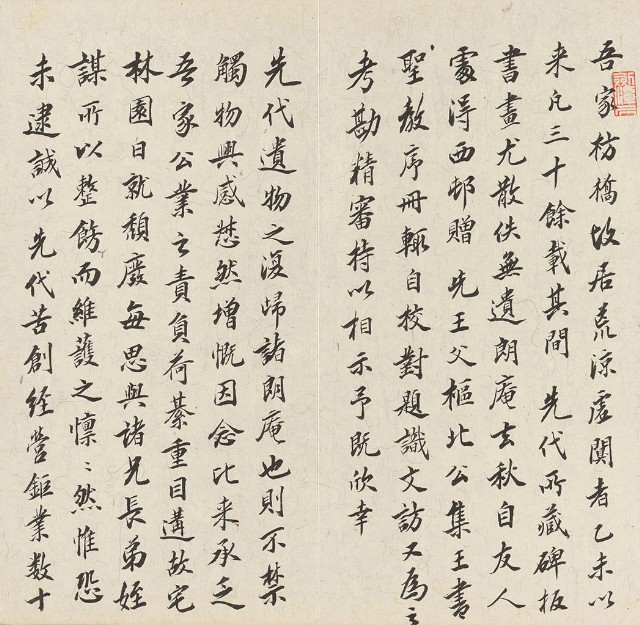 吾家枋橋故居荒涼虛闃者乙未以
来凡三十餘載其間 先代所藏碑板
書畫尤散佚無遺朗庵去秋自友人
處得西邨贈 先王父樞北公集王書
聖教序冊輒自校對題識文訪又為之
考勘精審持以相示予既欣幸
先代遺物之復歸詣朗庵也則不禁
觸物興感然增慨因念比来承乏
吾家公業之責負荷綦重目遘故宅
林園日就頹廢每思與諸兄長弟姪
謀所以整飭而維護之懍〻然惟恐
未逮誠以先代苦創經營鉅業数十